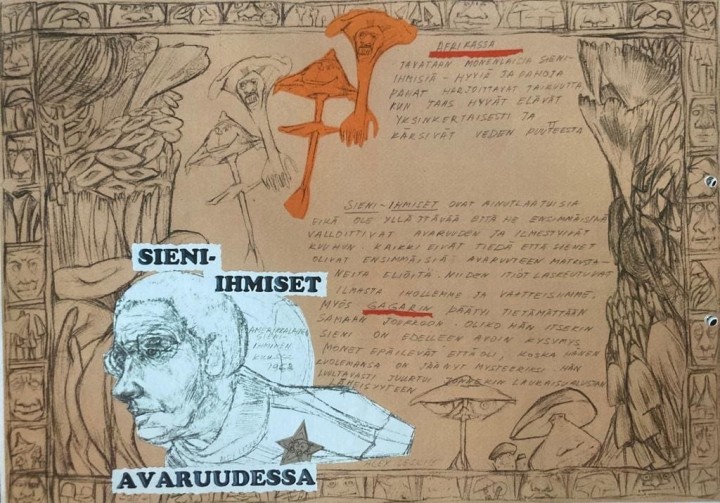 AFRIKASSA
TAVATAAN MONENLAISIA SIENI-
IHMISIÄ - HYVIÄ JA PAHOJA
PAHAT HARJOITTAVAT TAIKUUTTA
KUN TAAS HYVÄT ELÄVÄT
YKSINKERTAISESTI JA
KÄRSIVÄT VEDEN PUUTEESTA
SIENI-IHMISET OVAT AINUTLAATUISIA
EIKÄ OLE YLLÄTTÄVÄÄ ETTÄ HE ENSIMMÄISINÄ
VALLOITTIVAT AVARUUDEN JA ILMESTYIVÄT
KUUHUN. KAIKKI EIVÄT TIEDÄ ETTÄ SIENET
OLIVAT ENSIMMÄISIÄ AVARUUTEEN MATKUSTA-
NEITA ELIÖITÄ. NIIDEN ITIÖT LASKEUTUVAT
ILMASTA IHOLLEMME JA VAATTEISIIMME.
MYÖS GAGARIN PÄÄTYI TIETÄMÄTTÄÄN
SAMAAN JOUKKOON. OLIKO HÄN ITSEKIN
SIENI ON EDELLEEN AVOIN KYSYMYS
MONET EPÄILEVÄT ETTÄ OLI, KOSKA HÄNEN
KUOLEMANSA ON JÄÄNYT MYSTEERIKSI. HÄN
LUULTAVASTI JUURTUI JONNEKIN LAUKAISUALUSTAN
LÄHEISYYTEEN
SIENI-
IHMISET
AMERIKKALAINEN
SIENI-
IHMINEN
KUUSSA
AVARUUDESSA